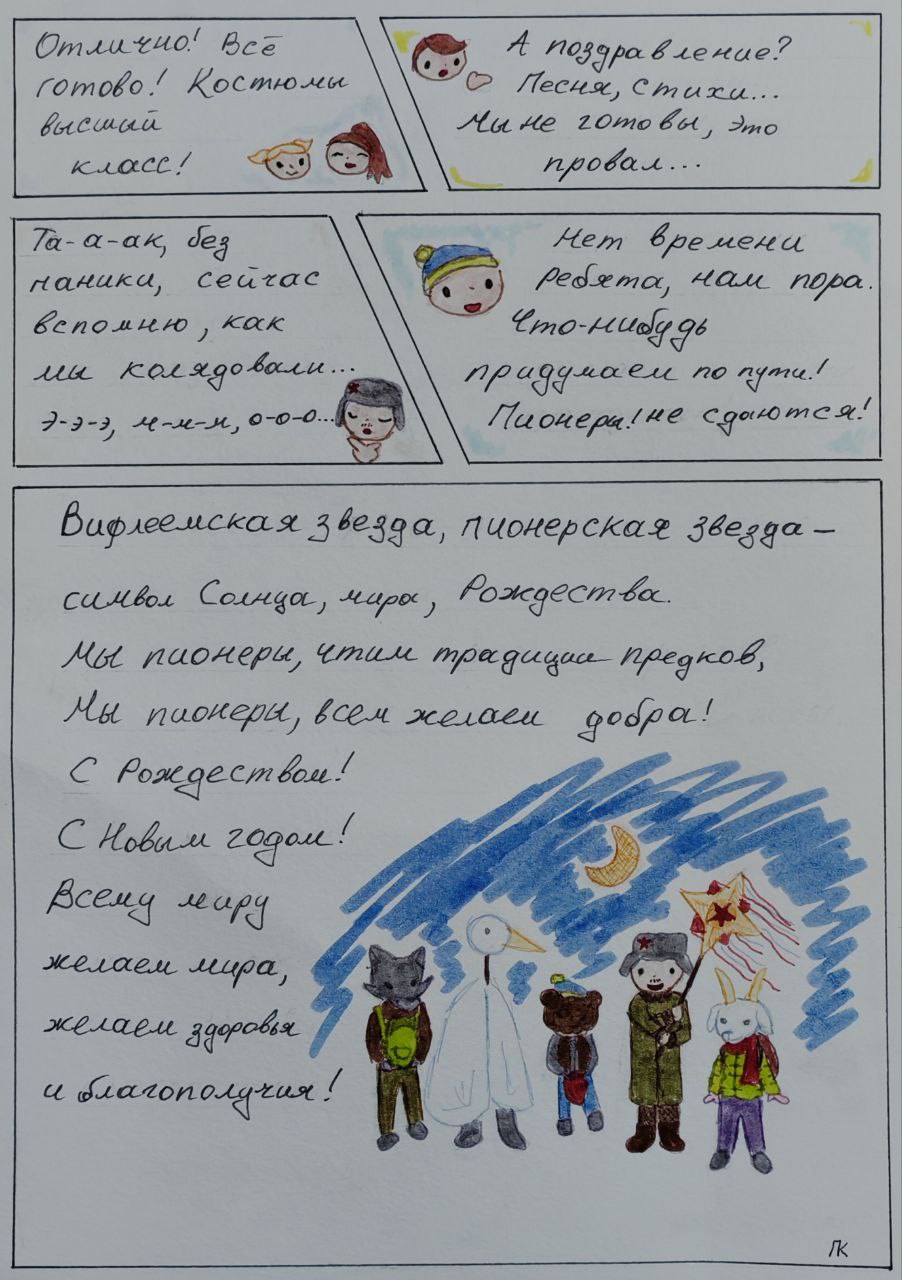 Отлично! Всё
готово! Костюмы
высший
класс!
А поздравление?
Песня, стихи...
Мы не готовы, это
провал...
Та-а-ак, без
паники, сейчас
вспомню, как
мы колядовали...
Э-э-э, м-м-м, о-о-о...
Нет времени
ребята, нам пора.
Что-нибудь
придумаем по пути!
Пионеры! не сдаются!
Вифлеемская звезда, пионерская звезда –
символ Солнца, мира, Рождества.
Мы пионеры, чтим традиции предков,
Мы пионеры, всем желаем добра!
С Рождеством!
С Новым годом!
Всему миру
желаем мира,
желаем здоровья
и благополучия!
ПК